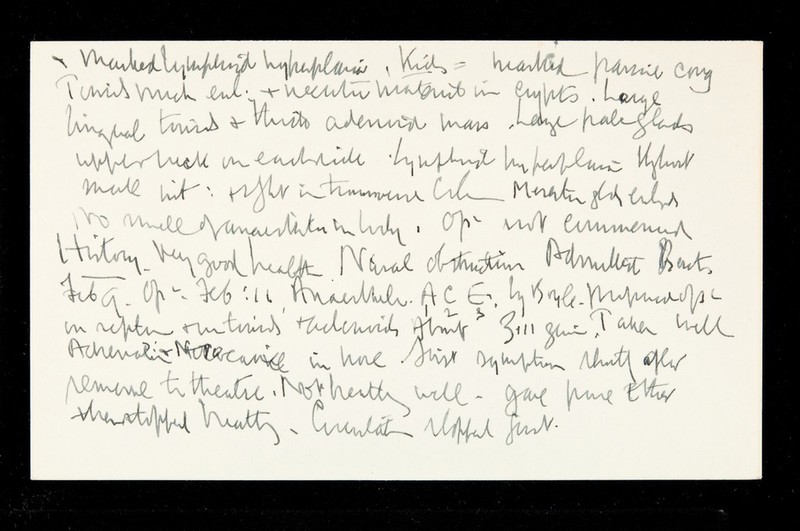 Marked lymphoid hyperplasia. Kids = marked passive cong
Tonsils much enl. + necrotic material in crypts. Large
lingual tonsils & thick adenoid mass. Large pale glands
upper neck on each side. Lymphoid hyperplasia throut
small int: slight in transverse Colon Mesenteric glds enlgd
No smell of anaesthetic in body. Opn not commenced
History. Very good health Nasal obstruction Admitted Barts
Feb 9. Opn. Feb: 11 Anaesthetic. A C2 E3, by Boyle. Proposed opn
on septum & on tonsils & adenoids About ʒiii given. Taken well
Adrenalin & Novocaine in nose first symptom shortly after
removal to theatre. Not breathing well - gave pure Ether
& then stopped breathing. Circulation stopped first.